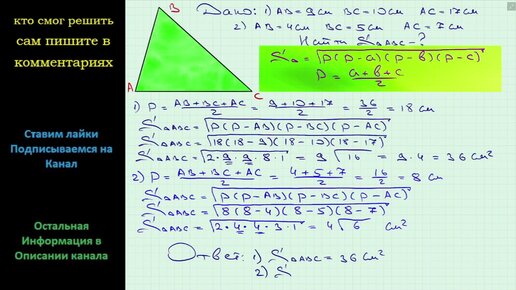 кто смог решить
сам пишите в
комментариях
Ставим лайки
Подписываемся на
Канал
Остальная
Информация в
Описании канала
B
A
C
Дано: 1) AB = 9см BC = 10см AC = 17см
2) AB = 4см BC = 5см AC = 7см
Найти S△ABC - ?
S△ = √(p(p-a)(p-b)(p-c))
p = (a+b+c)/2
1) P = (AB+BC+AC)/2 = (9+10+17)/2 = 36/2 = 18 см
S△ABC = √(P(P-AB)(P-BC)(P-AC))
S△ABC = √(18(18-9)(18-10)(18-17))
S△ABC = √(2·9·9·8·1) = 9√16 = 9·4 = 36 см²
2) P = (AB+BC+AC)/2 = (4+5+7)/2 = 16/2 = 8 см
S△ABC = √(P(P-AB)(P-BC)(P-AC))
S△ABC = √(8(8-4)(8-5)(8-7))
S△ABC = √(2·4·4·3·1) = 4√6 см²
Ответ: 1) S△ABC = 36 см²
2) S